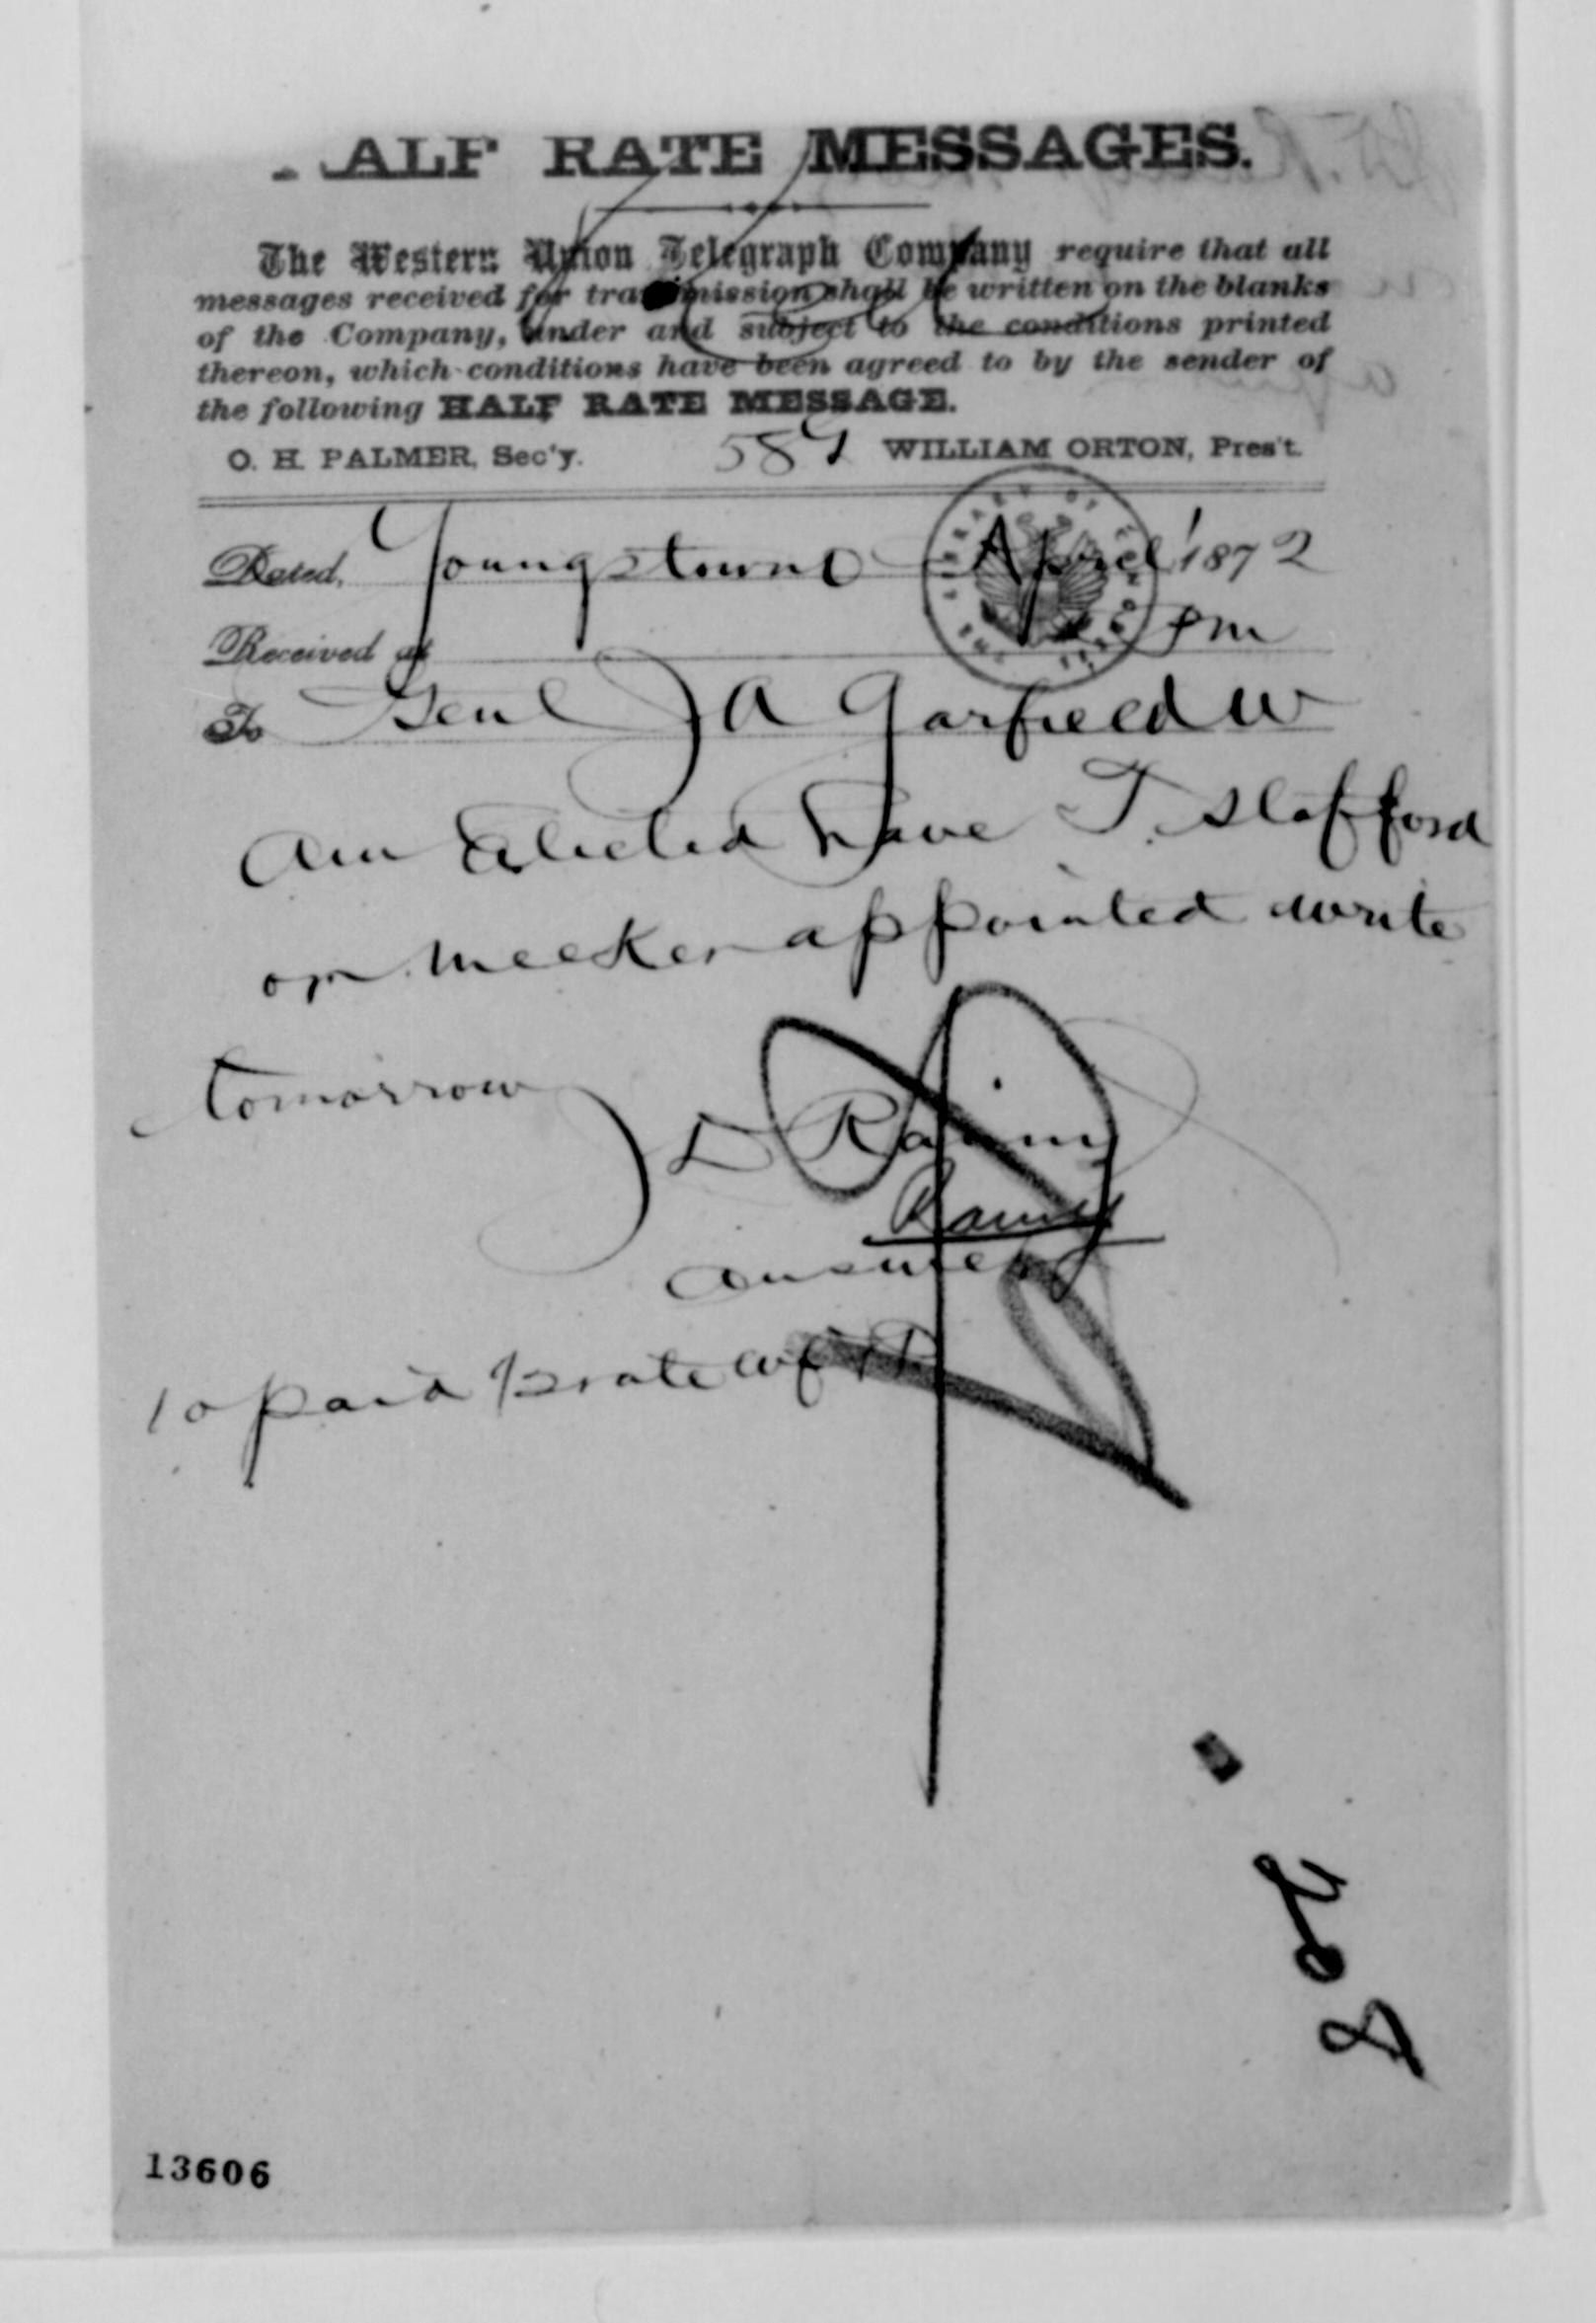 HALF RATE MESSAGES.
The Western Union Telegraph Company require that all
messages received for transmission shall be written on the blanks
of the Company, under and subject to the conditions printed
thereon, which conditions have been agreed to by the sender of
the following HALF RATE MESSAGE.
O. H. PALMER, Sec'y. 589 WILLIAM ORTON, Pres't.
Dated, Youngstown O April 1 1872
Received at pm
To Genl J A Garfield W
Am Elected have T. Stafford
or Meeker appointed write
tomorrow
D
answer
10 paid 1/2 rate
208
13606